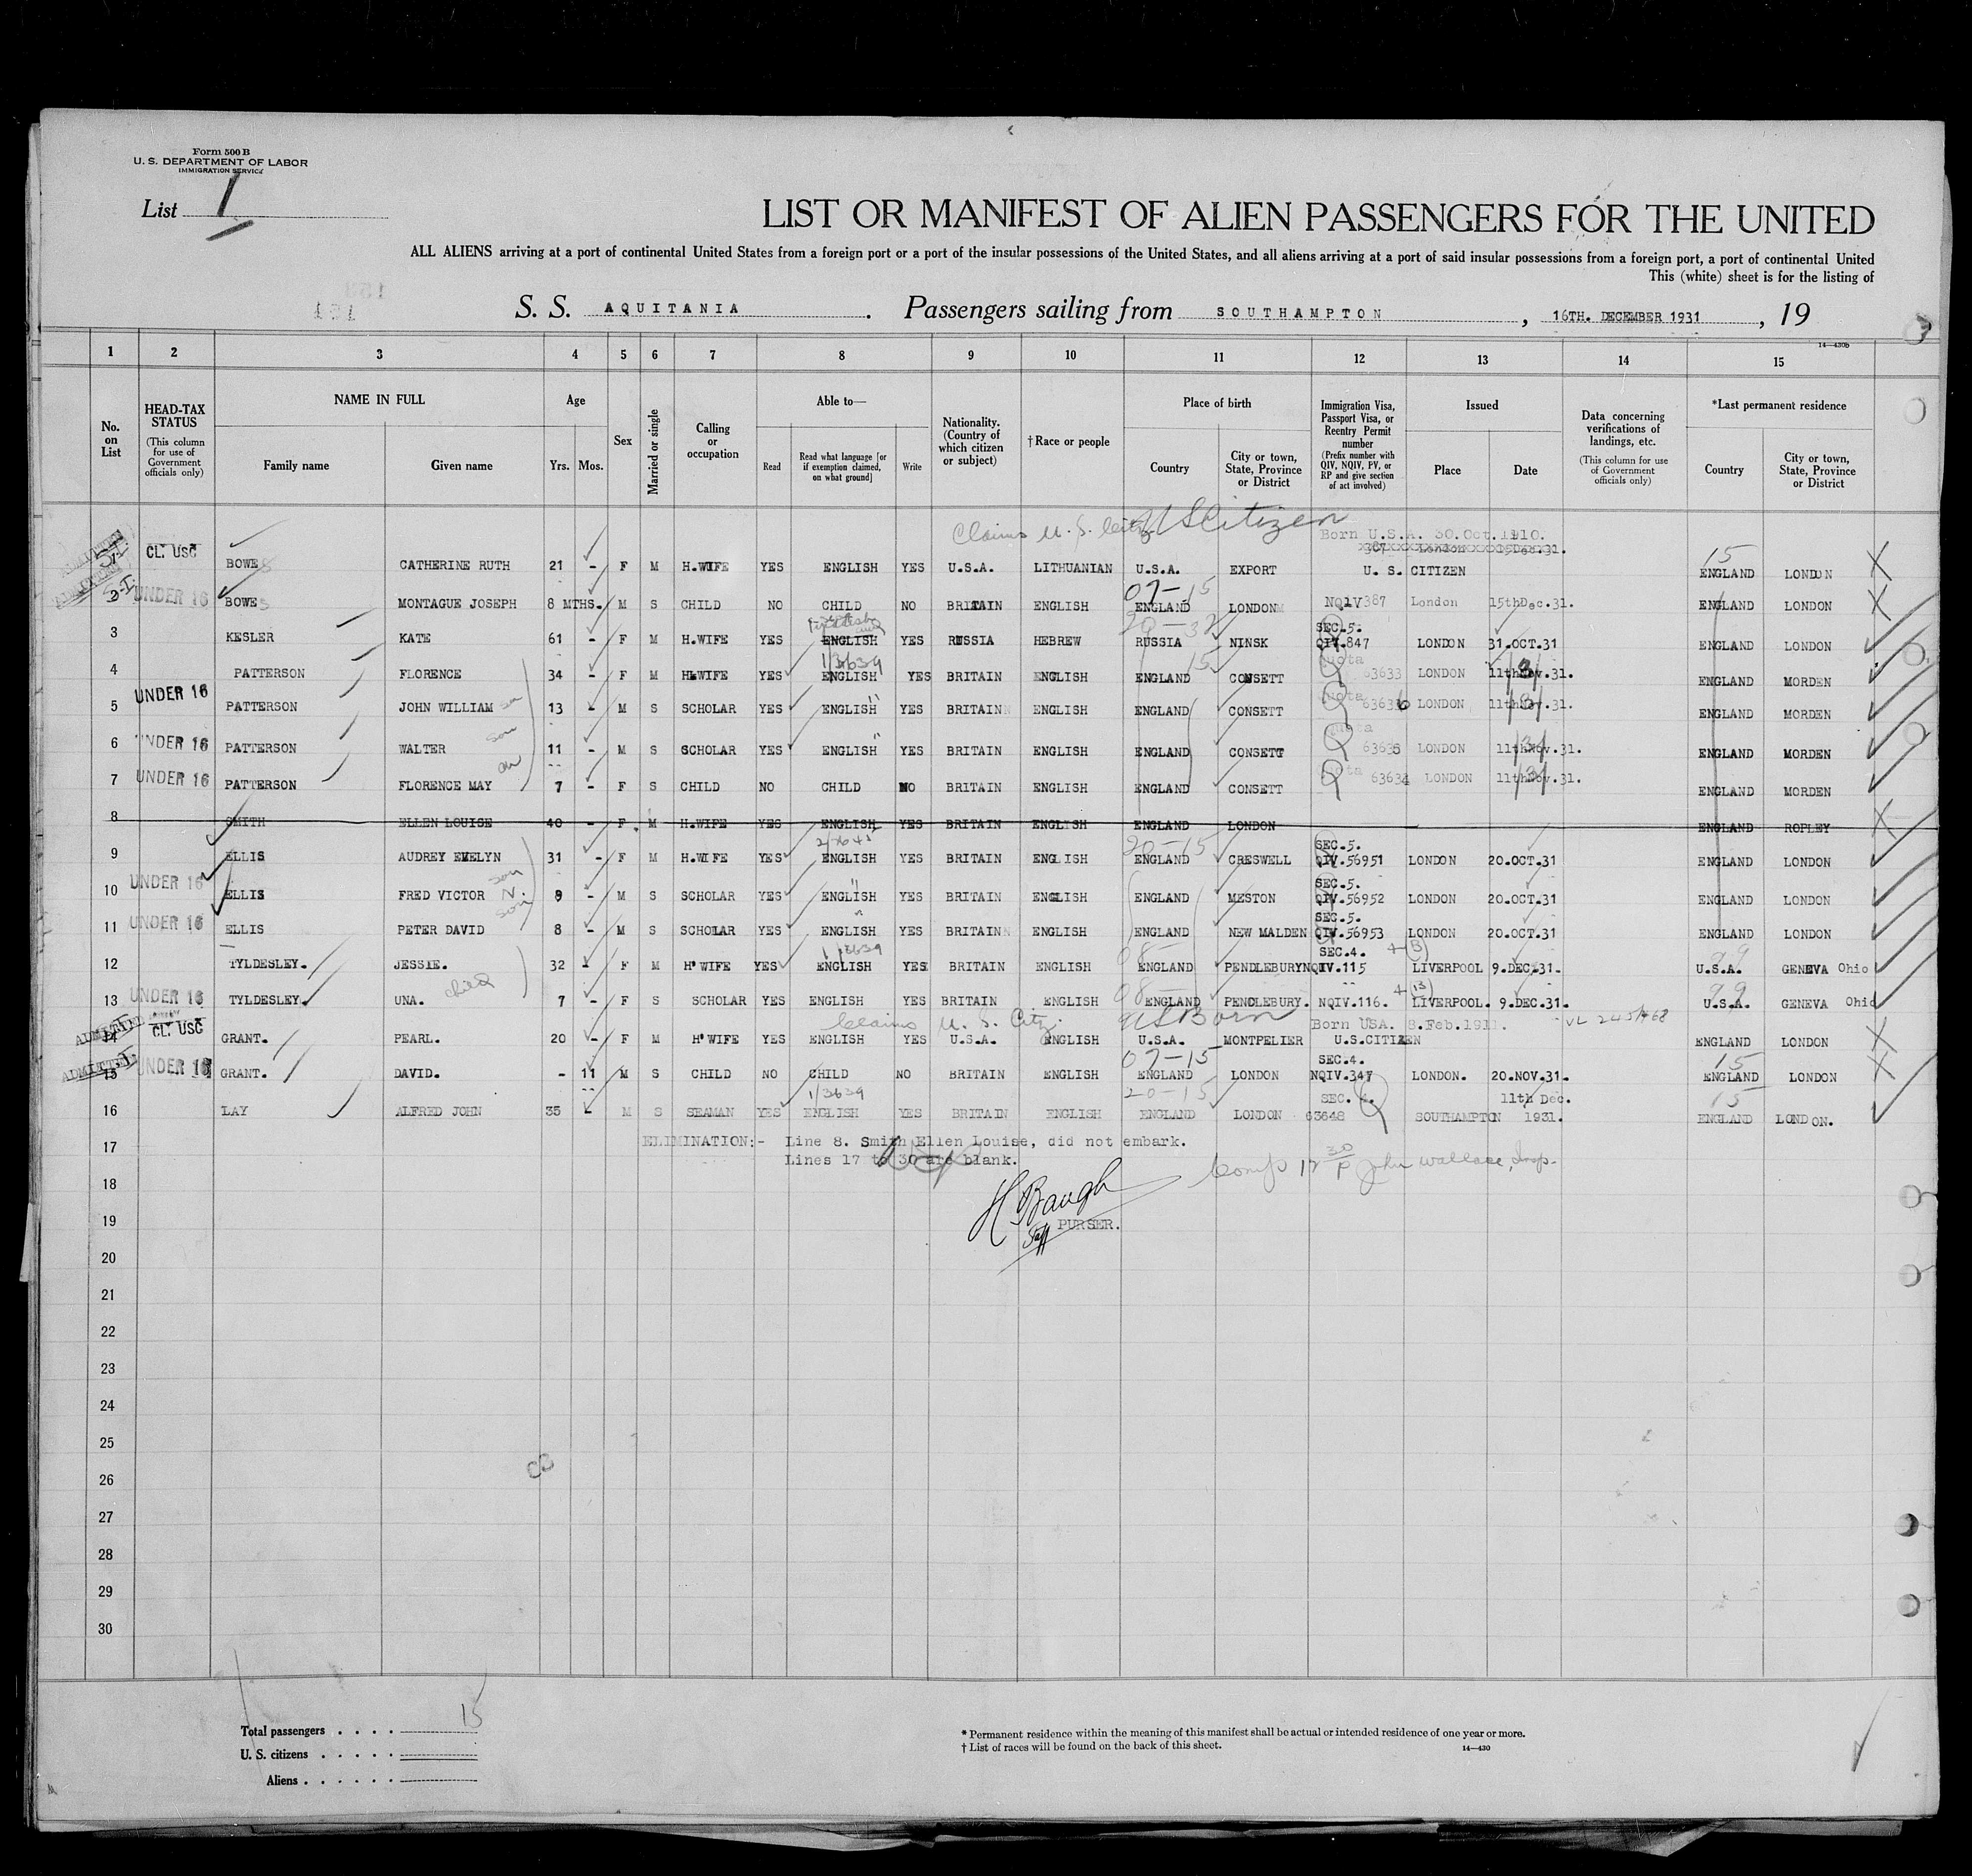 Form 500 B
U. S. DEPARTMENT OF LABOR
IMMIGRATION SERVICE
List 1
LIST OR MANIFEST OF ALIEN PASSENGERS FOR THE UNITED
ALL ALIENS arriving at a port of continental United States from a foreign port or a port of the insular possessions of the United States, and all aliens arriving at a port of said insular possessions from a foreign port, a port of continental United
This (white) sheet is for the listing of
S. S. AQUITANIA. Passengers sailing from SOUTHAMPTON, 16TH. DECEMBER 1931, 19
14—430b
1 2 3 4 5 6 7 8 9 10 11 12 13 14 15
No. on List
HEAD-TAX STATUS (This column for use of Government officials only)
NAME IN FULL Family name Given name
Age Yrs. Mos.
Sex
Married or single
Calling or occupation
Able to— Read Read what language [or if exemption claimed, on what ground] Write
Nationality. (Country of which citizen or subject)
†Race or people
Place of birth Country City or town, State, Province or District
Immigration Visa, Passport Visa, or Reentry Permit number (Prefix number with QIV, NQIV, PV, or RP and give section of act involved)
Issued Place Date
Data concerning verifications of landings, etc. (This column for use of Government officials only)
*Last permanent residence Country City or town, State, Province or District
Claims U. S. Citz. US Citizen Born U.S.A. 30.Oct.1910.
CL. USC BOWES CATHERINE RUTH 21 - F M H.WIFE YES ENGLISH YES U.S.A. LITHUANIAN U.S.A. EXPORT U. S. CITIZEN 15 ENGLAND LONDON X
07-15
2 UNDER 16 BOWES MONTAGUE JOSEPH 8 MTHS. M S CHILD NO CHILD NO BRITAIN ENGLISH ENGLAND LONDON NQIV387 London 15thDec.31. ENGLAND LONDON X
20-32 SEC.5.
3 KESLER KATE 61 - F M H.WIFE YES ENGLISH YES RUSSIA HEBREW RUSSIA NINSK QIV.847 LONDON 31.OCT.31 ENGLAND LONDON
1/3639 15 Quota
4 PATTERSON FLORENCE 34 - F M H.WIFE YES ENGLISH YES BRITAIN ENGLISH ENGLAND CONSETT 63633 LONDON 11thNov.31. ENGLAND MORDEN
5 UNDER 16 PATTERSON JOHN WILLIAM son 13 - M S SCHOLAR YES ENGLISH " YES BRITAIN ENGLISH ENGLAND CONSETT Quota 63636 LONDON 11thNov.31. ENGLAND MORDEN
6 UNDER 16 PATTERSON WALTER son 11 - M S SCHOLAR YES ENGLISH " YES BRITAIN ENGLISH ENGLAND CONSETT Quota 63635 LONDON 11thNov.31. ENGLAND MORDEN
7 UNDER 16 PATTERSON FLORENCE MAY 7 - F S CHILD NO CHILD NO BRITAIN ENGLISH ENGLAND CONSETT Quota 63634 LONDON 11thNov.31. ENGLAND MORDEN
8 SMITH ELLEN LOUISE 40 - F M H.WIFE YES ENGLISH YES BRITAIN ENGLISH ENGLAND LONDON ENGLAND ROPLEY X
20-15 SEC.5.
9 ELLIS AUDREY EVELYN 31 - F M H.WIFE YES ENGLISH YES BRITAIN ENGLISH ENGLAND CRESWELL QIV.56951 LONDON 20.OCT.31 ENGLAND LONDON
SEC.5.
10 UNDER 16 ELLIS FRED VICTOR son 9 - M S SCHOLAR YES ENGLISH " YES BRITAIN ENGLISH ENGLAND MESTON QIV.56952 LONDON 20.OCT.31 ENGLAND LONDON
SEC.5.
11 UNDER 16 ELLIS PETER DAVID son 8 - M S SCHOLAR YES ENGLISH " YES BRITAIN ENGLISH ENGLAND NEW MALDEN QIV.56953 LONDON 20.OCT.31 ENGLAND LONDON
08- SEC.4. 99
12 TYLDESLEY. JESSIE. 32 - F M H'WIFE YES ENGLISH YES BRITAIN ENGLISH ENGLAND PENDLEBURY NQIV.115 LIVERPOOL 9.DEC.31. U.S.A. GENEVA Ohio
13 UNDER 16 TYLDESLEY. UNA. child 7 - F S SCHOLAR YES ENGLISH YES BRITAIN ENGLISH 08- ENGLAND PENDLEBURY. NQIV.116. LIVERPOOL. 9.DEC.31. 99 U.S.A. GENEVA Ohio
ADMITTED Claims U. S. Citz. US Born Born USA. 8.Feb.191
14 CL. USC GRANT. PEARL. 20 - F M H'WIFE YES ENGLISH YES U.S.A. ENGLISH U.S.A. MONTPELIER U.S.CITIZEN ENGLAND LONDON X
ADMITTED 07-15 SEC.4. 15
15 UNDER 16 GRANT. DAVID. - 11 M S CHILD NO CHILD NO BRITAIN ENGLISH ENGLAND LONDON NQIV.347 LONDON. 20.NOV.31. ENGLAND LONDON X
1/3639 20-15 SEC. 11th Dec. 15
16 LAY ALFRED JOHN 35 - M S SEAMAN YES ENGLISH YES BRITAIN ENGLISH ENGLAND LONDON 63648 SOUTHAMPTON 1931. ENGLAND LONDON.
17 ELIMINATION:- Line 8. Smith Ellen Louise, did not embark.
Lines 17 to 30 are blank.
John Wallace, Insp.
18
H Baugh
19 Staff PURSER.
20
21
22
23
24
25
26
27
28
29
30
Total passengers . . . . 15
U. S. citizens . . . . .
Aliens . . . . . .
* Permanent residence within the meaning of this manifest shall be actual or intended residence of one year or more.
† List of races will be found on the back of this sheet.
14—430